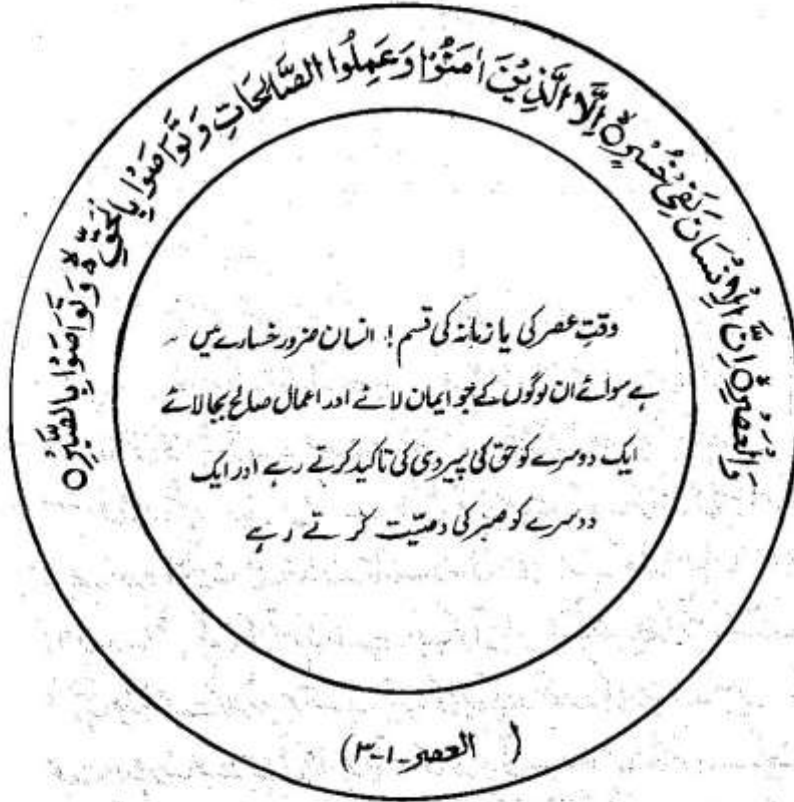 وَالْعَصْرِ ۝ اِنَّ الْاِنْسَانَ لَفِیْ خُسْرٍ ۝ اِلَّا الَّذِیْنَ اٰمَنُوْا وَعَمِلُوا الصَّالِحَاتِ وَتَوَاصَوْا بِالْحَقِّ ۙ۬ وَتَوَاصَوْا بِالصَّبْرِ ۝
وقتِ عصر کی یا زمانہ کی قسم! انسان ضرور خسارے میں
ہے سوائے ان لوگوں کے جو ایمان لائے اور اعمال صالح بجا لائے
ایک دوسرے کو حق کی پیروی کی تاکید کرتے رہے اور ایک
دوسرے کو صبر کی وصیّت کرتے رہے
(العصر-۱-۳)